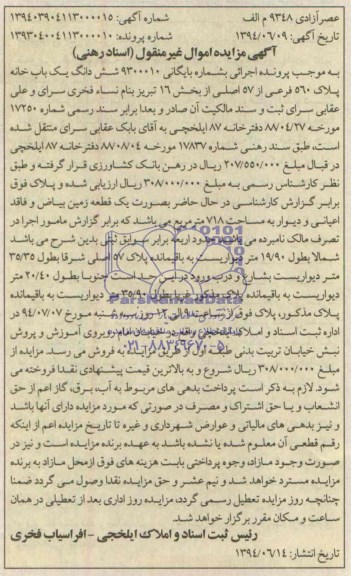 عصرآزادی ۹۳۴۸ م الف شماره آگهی: ۱۳۹۴۰۳۹۰۴۱۱۳۰۰۰۰۱۵
تاریخ آگهی: ۱۳۹۴/۰۶/۰۹ شماره پرونده: ۱۳۹۳۰۴۰۰۴۱۱۳۰۰۰۰۱۰
آگهی مزایده اموال غیرمنقول (اسناد رهنی)
به موجب پرونده اجرائی بشماره بایگانی ۹۳۰۰۰۱۰ شش دانگ یک باب خانه
پلاک ۵۶۰ فرعی از ۵۷ اصلی از بخش ۱۶ تبریز بنام نساء فخری سرای و علی
عقابی سرای ثبت و سند مالکیت آن صادر و بعدا برابر سند رسمی شماره ۱۷۲۵۰
مورخه ۸۸/۰۴/۲۷ دفترخانه ۸۷ ایلخچی به آقای بابک عقابی سرای منتقل شده
است، طبق سند رهنی شماره ۱۷۸۳۷ مورخه ۸۸/۰۸/۰۴ دفترخانه ۸۷ ایلخچی
در قبال مبلغ ۲۰۷/۵۵۰/۰۰۰ ریال در رهن بانک کشاورزی قرار گرفته و طبق
نظر کارشناس رسمی به مبلغ ۳۰۸/۰۰۰/۰۰۰ ریال ارزیابی شده و پلاک فوق
برابر گزارش کارشناسی در حال حاضر بصورت یک قطعه زمین بیاض و فاقد
اعیانی و دیوار به مساحت ۷۱۸ مترمربع می باشد که برابر گزارش مامور اجرا در
تصرف مالک نامبرده می باشد حدود اربعه برابر سوابق ثبتی بدین شرح می باشد
شمالا بطول ۱۹/۹۰ متر دیواریست به باقیمانده پلاک ۵۷ اصلی شرقا بطول ۳۵/۳۵
متر دیواریست بشارع و درب ورود در این حد است جنوبا بطول ۲۰/۴۰ متر
دیواریست به باقیمانده پلاک مذکور غربا بطول ۳۵/۹۰ متر دیواریست به باقیمانده
پلاک مذکور، پلاک فوق از ساعت ۹ الی ۱۲ روز سه شنبه مورخ ۹۴/۰۷/۰۷ در
اداره ثبت اسناد و املاک ایلخچی واقع در خیابان امام روبروی آموزش و پرورش
نبش خیابان تربیت بدنی طبقه اول از طریق مزایده به فروش می رسد. مزایده از
مبلغ ۳۰۸/۰۰۰/۰۰۰ ریال شروع و به بالاترین قیمت پیشنهادی نقدا فروخته می
شود. لازم به ذکر است پرداخت بدهی های مربوط به آب، برق، گاز اعم از حق
انشعاب و یا حق اشتراک و مصرف در صورتی که مورد مزایده دارای آنها باشد
و نیز بدهی های مالیاتی و عوارض شهرداری و غیره تا تاریخ مزایده اعم از اینکه
رقم قطعی آن معلوم شده یا نشده باشد به عهده برنده مزایده است و نیز در
صورت وجود مازاد، وجوه پرداختی بابت هزینه های فوق ازمحل مازاد به برنده
مزایده مسترد خواهد شد و نیم عشر و حق مزایده نقدا وصول می گردد ضمنا
چنانچه روز مزایده تعطیل رسمی گردد، مزایده روز اداری بعد از تعطیلی در همان
ساعت و مکان مقرر برگزار خواهد شد.
رئیس ثبت اسناد و املاک ایلخچی - افراسیاب فخری
تاریخ انتشار: ۱۳۹۴/۰۶/۱۴
ParsNamadData
۰۲۱-۸۸۳۴۹۶۷۰-۵